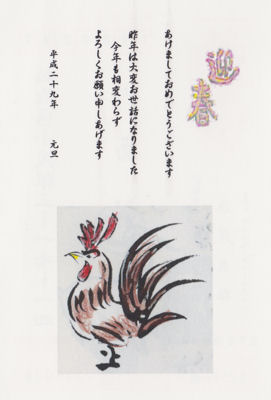 迎春
あけましておめでとうございます
昨年は大変お世話になりました
今年も相変わらず
よろしくお願い申しあげます
平成二十九年　元旦